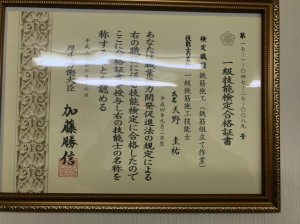 一級技能検定合格証書
検定職種 鉄筋施工(鉄筋組立て作業)
技能士の名称 一級鉄筋施工技能士
氏名 天野 圭祐
あなたは職業能力開発促進法の規定による
右の職種に係る技能検定に合格したので
ここに合格証書を授与し右の技能士の名称を
称することを認める
厚生労働大臣 加藤勝信